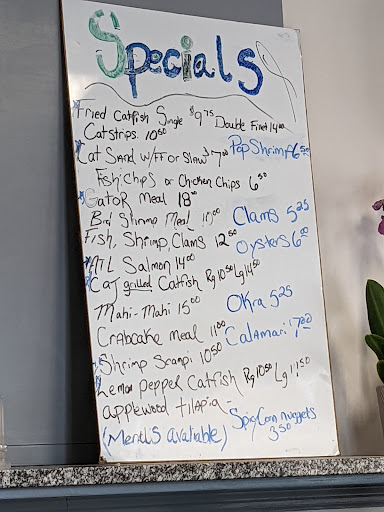 Specials
Fried Catfish Single $9.75 Double Fried 14.00
Catstrips 10.50
Cat Sand w/FF or Slaw $7.00 Pop Shrimp $6.50
Fish:Chips or Chicken Chips 6.50
Gator Meal 18.00
Big Shrimp Meal Clams 5.25
Fish, Shrimp, Clams 12.50 Oysters 6.00
Atl Salmon 14.00
Caj grilled Catfish Rg 10.50 Lg 14.50
Okra 5.25
Mahi-Mahi 15.00
Crabcake Meal 11.00 Calamari 7.00
Shrimp Scampi 10.50
Lemon Pepper Catfish Rg 10.50 Lg
applewood tilapia -
Spicy Corn nuggets
(Menus avaliable) 3.50